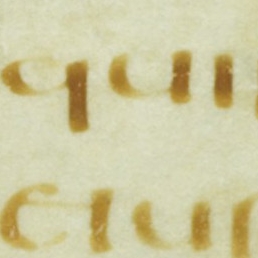 qui
eiu